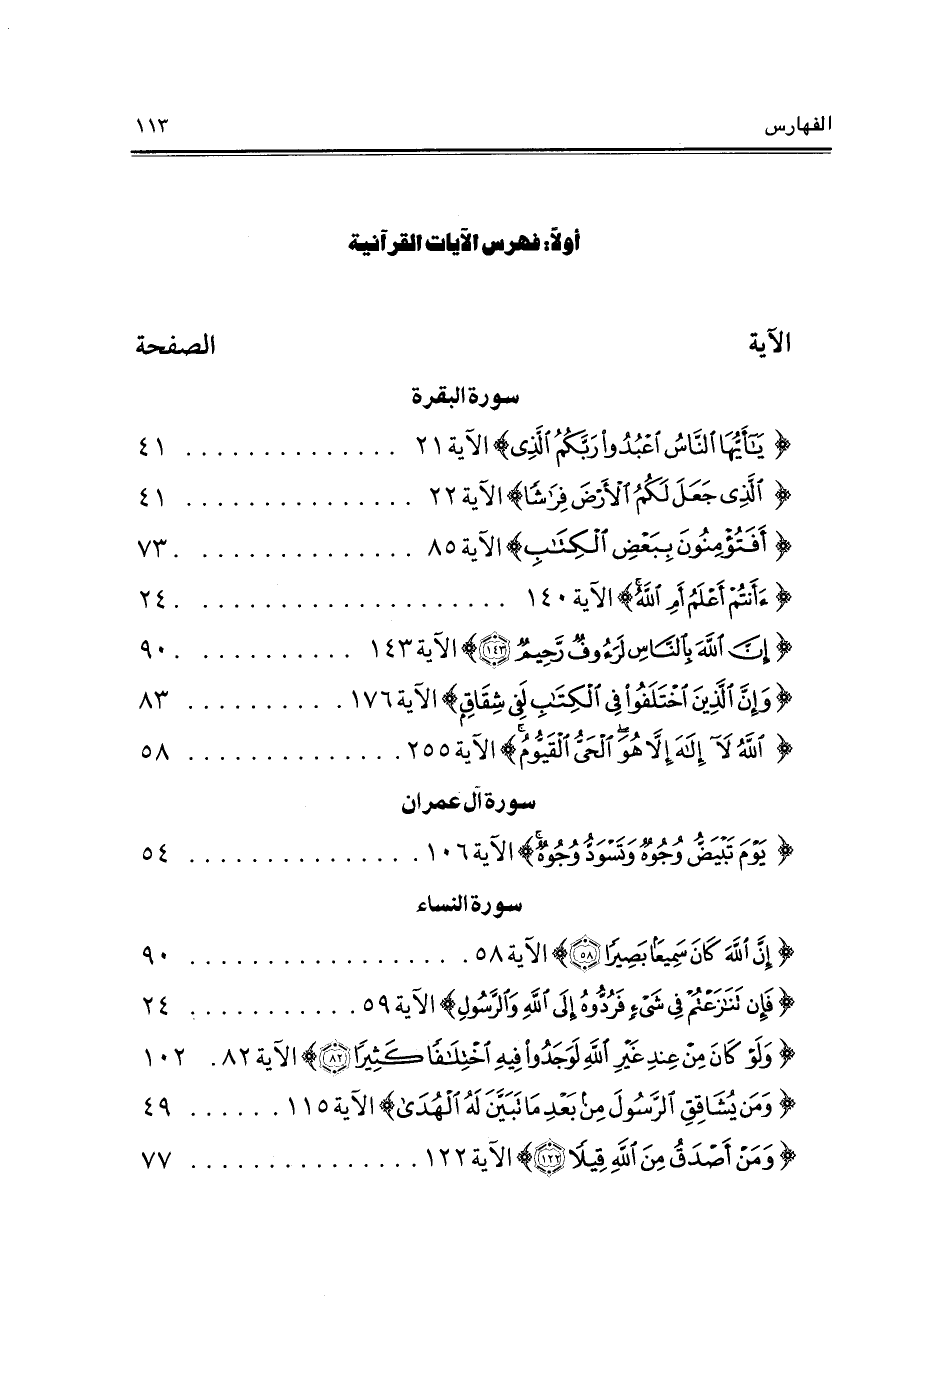 الفهارس ١١٣
أولاً: فهرس الآيات القرآنية
الآية الصفحة
سورة البقرة
﴿ يَـٰٓأَيُّهَا ٱلنَّاسُ ٱعۡبُدُواْ رَبَّكُمُ ٱلَّذِى﴾ الآية ٢١ . . . . . . . . . . . . . . ٤١
﴿ ٱلَّذِى جَعَلَ لَكُمُ ٱلۡأَرۡضَ فِرَٰشًا﴾ الآية ٢٢ . . . . . . . . . . . . . . . ٤١
﴿ أَفَتُؤۡمِنُونَ بِبَعۡضِ ٱلۡكِتَـٰبِ﴾ الآية ٨٥ . . . . . . . . . . . . . . . ٧٣
﴿ ءَأَنتُمۡ أَعۡلَمُ أَمِ ٱللَّهُۗ﴾ الآية ١٤٠ . . . . . . . . . . . . . . . . . . . . . ٢٤
﴿ إِنَّ ٱللَّهَ بِٱلنَّاسِ لَرَءُوفٌ رَّحِيمٌ ١٤٣﴾ الآية ١٤٣ . . . . . . . . . . . ٩٠
﴿ وَإِنَّ ٱلَّذِينَ ٱخۡتَلَفُواْ فِى ٱلۡكِتَـٰبِ لَفِى شِقَاقٍ﴾ الآية ١٧٦ . . . . . . . . . . . ٨٣
﴿ ٱللَّهُ لَآ إِلَـٰهَ إِلَّا هُوَ ٱلۡحَىُّ ٱلۡقَيُّومُۚ﴾ الآية ٢٥٥ . . . . . . . . . . . . . . . ٥٨
سورة آل عمران
﴿ يَوۡمَ تَبۡيَضُّ وُجُوهٌ وَتَسۡوَدُّ وُجُوهٌۚ﴾ الآية ١٠٦ . . . . . . . . . . . . . . . . ٥٤
سورة النساء
﴿ إِنَّ ٱللَّهَ كَانَ سَمِيعَۢا بَصِيرًا ٥٨﴾ الآية ٥٨ . . . . . . . . . . . . . . . . . . . ٩٠
﴿ فَإِن تَنَـٰزَعۡتُمۡ فِى شَىۡءٍ فَرُدُّوهُ إِلَى ٱللَّهِ وَٱلرَّسُولِ﴾ الآية ٥٩ . . . . . . . . . . . . ٢٤
﴿ وَلَوۡ كَانَ مِنۡ عِندِ غَيۡرِ ٱللَّهِ لَوَجَدُواْ فِيهِ ٱخۡتِلَـٰفًا كَثِيرًا ٨٢﴾ الآية ٨٢ . ١٠٢
﴿ وَمَن يُشَاقِقِ ٱلرَّسُولَ مِنۢ بَعۡدِ مَا تَبَيَّنَ لَهُ ٱلۡهُدَىٰ﴾ الآية ١١٥ . . . . . . . ٤٩
﴿ وَمَنۡ أَصۡدَقُ مِنَ ٱللَّهِ قِيلًا ١٢٢﴾ الآية ١٢٢ . . . . . . . . . . . . . . . . ٧٧